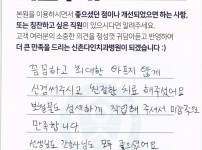 본원을 이용하시면서 좋으셨던 점이나 개선되었으면 하는 사항,
또는 칭찬하고 싶은 직원이 있으시다면 알려주세요.
고객 여러분의 소중한 의견을 정성껏 귀담아듣고 반영하여
더 큰 만족을 드리는 신촌다인치과병원이 되겠습니다 :)
꼼꼼하고 최대한 아프지 않게
신경써주시고 친절한 치료 해주셨어요
섬세하게 작업해 주셔서
만족합니다
선생님도 간호사님도 모두 좋으셨어요